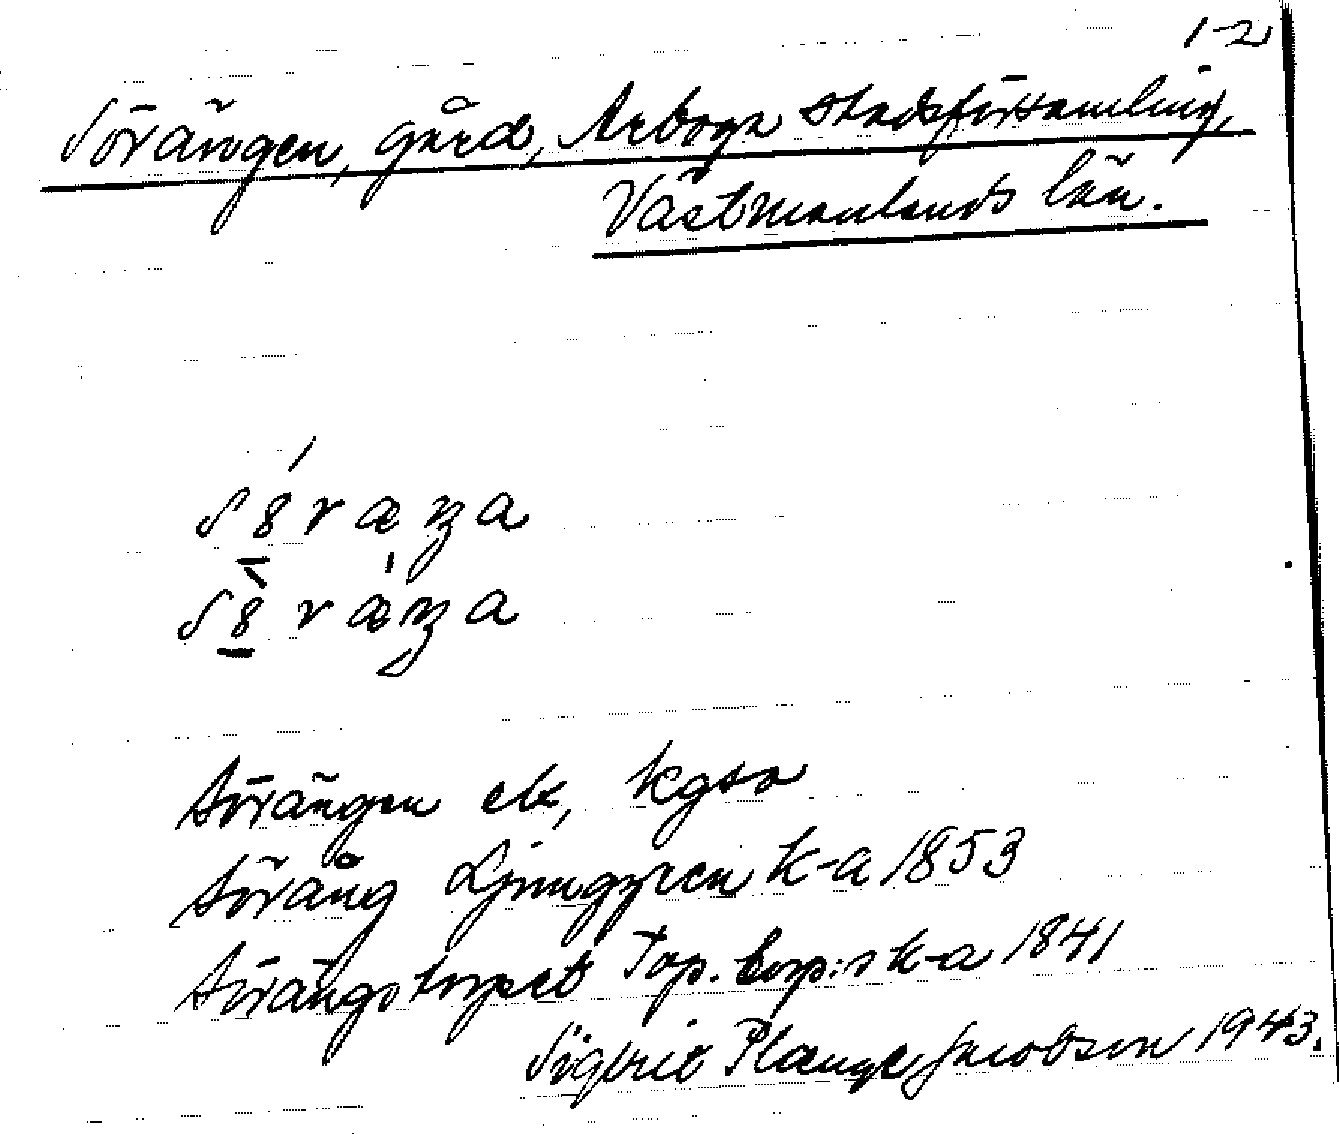 1-2
Sörängen, gård, Arboga stadsförsamling,
Västmanlands län.
Sörängen ek, kgsa
Söräng Ljunggren k-a 1853
Sörängstorpet Top. corp:s k-a 1841
Sigbrit Plænge Jacobson 1943.